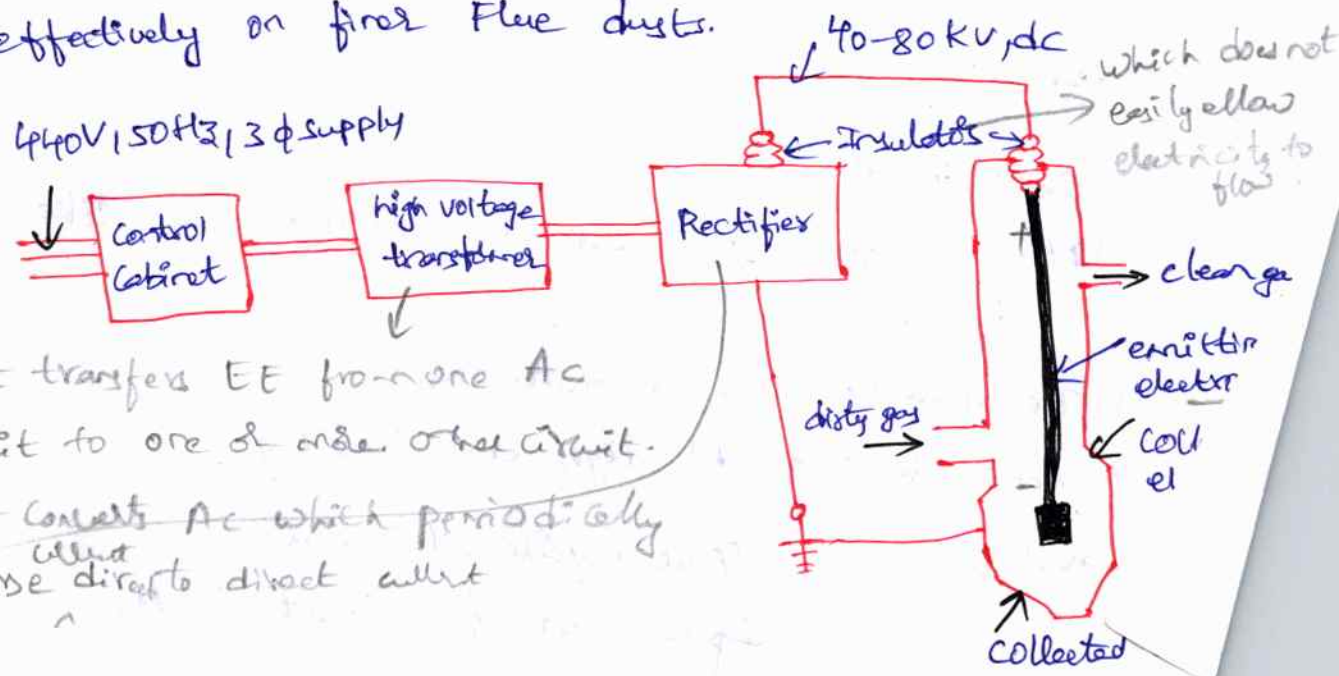 effectively on finer Flue dusts.
40-80 KV, dc
which does not
easily ellow
electricity to
flow
440V, 50Hz, 3 ϕ supply
Insulators
Control
Cabinet
high voltage
transformer
Rectifier
+
clean ga
emittin
electr
dirty gas
coll
el
-
transfers EE from one AC
it to one or more other circuit.
Converts AC which periodically
current
se direc to direct current
collected